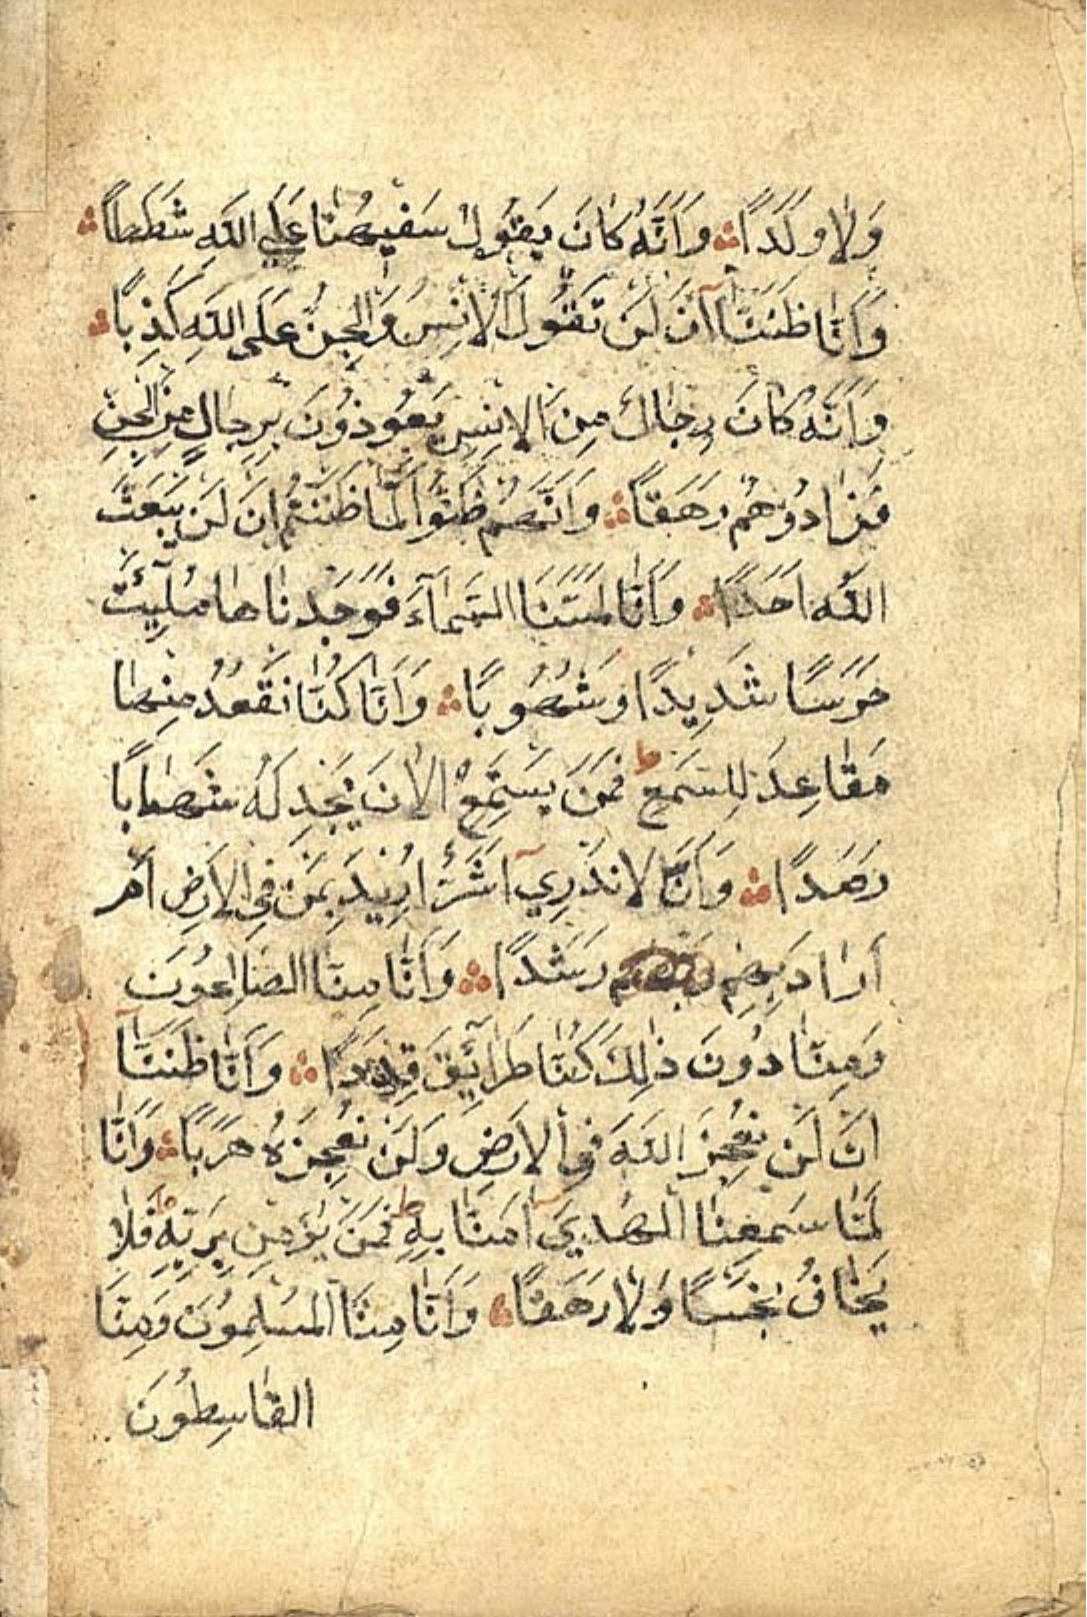 وَلَا وَلَدًا ۞ وَاَنَّهُ كَانَ يَقُولُ سَفِيهُنَا عَلَى اللَّهِ شَطَطًا ۞
وَاَنَّا ظَنَنَّآ اَنْ لَنْ تَقُولَ الْاِنْسُ وَالْجِنُّ عَلَى اللَّهِ كَذِبًا ۞
وَاَنَّهُ كَانَ رِجَالٌ مِنَ الْاِنْسِ يَعُوذُونَ بِرِجَالٍ مِنَ الْجِنِّ
فَزَادُوهُمْ رَهَقًا ۞ وَاَنَّهُمْ ظَنُّوا كَمَا ظَنَنْتُمْ اَنْ لَنْ يَبْعَثَ
اللَّهُ اَحَدًا ۞ وَاَنَّا لَمَسْنَا السَّمَآءَ فَوَجَدْنَاهَا مُلِئَتْ
حَرَسًا شَدِيدًا وَشُهُوبًا ۞ وَاَنَّا كُنَّا نَقْعُدُ مِنْهَا
مَقَاعِدَ لِلسَّمْعِ ط فَمَنْ يَسْتَمِعِ الْاٰنَ يَجِدْ لَهُ شِهَابًا
رَصَدًا ۞ وَاَنَّا لَا نَدْرِي آ اَشَرٌّ اُرِيدَ بِمَنْ فِي الْاَرْضِ اَمْ
اَرَادَ بِهِمْ رَبُّهُمْ رَشَدًا ۞ وَاَنَّا مِنَّا الصَّالِحُونَ
وَمِنَّا دُونَ ذٰلِكَ كُنَّا طَرَآئِقَ قِدَدًا ۞ وَاَنَّا ظَنَنَّآ
اَنْ لَنْ نُعْجِزَ اللَّهَ فِي الْاَرْضِ وَلَنْ نُعْجِزَهُ هَرَبًا ۞ وَاَنَّا
لَمَّا سَمِعْنَا الْهُدٰىٓ اٰمَنَّا بِهِ ط فَمَنْ يُؤْمِنْ بِرَبِّهِ فَلَا
يَخَافُ بَخْسًا وَلَا رَهَقًا ۞ وَاَنَّا مِنَّا الْمُسْلِمُونَ وَمِنَّا
الْقَاسِطُونَ